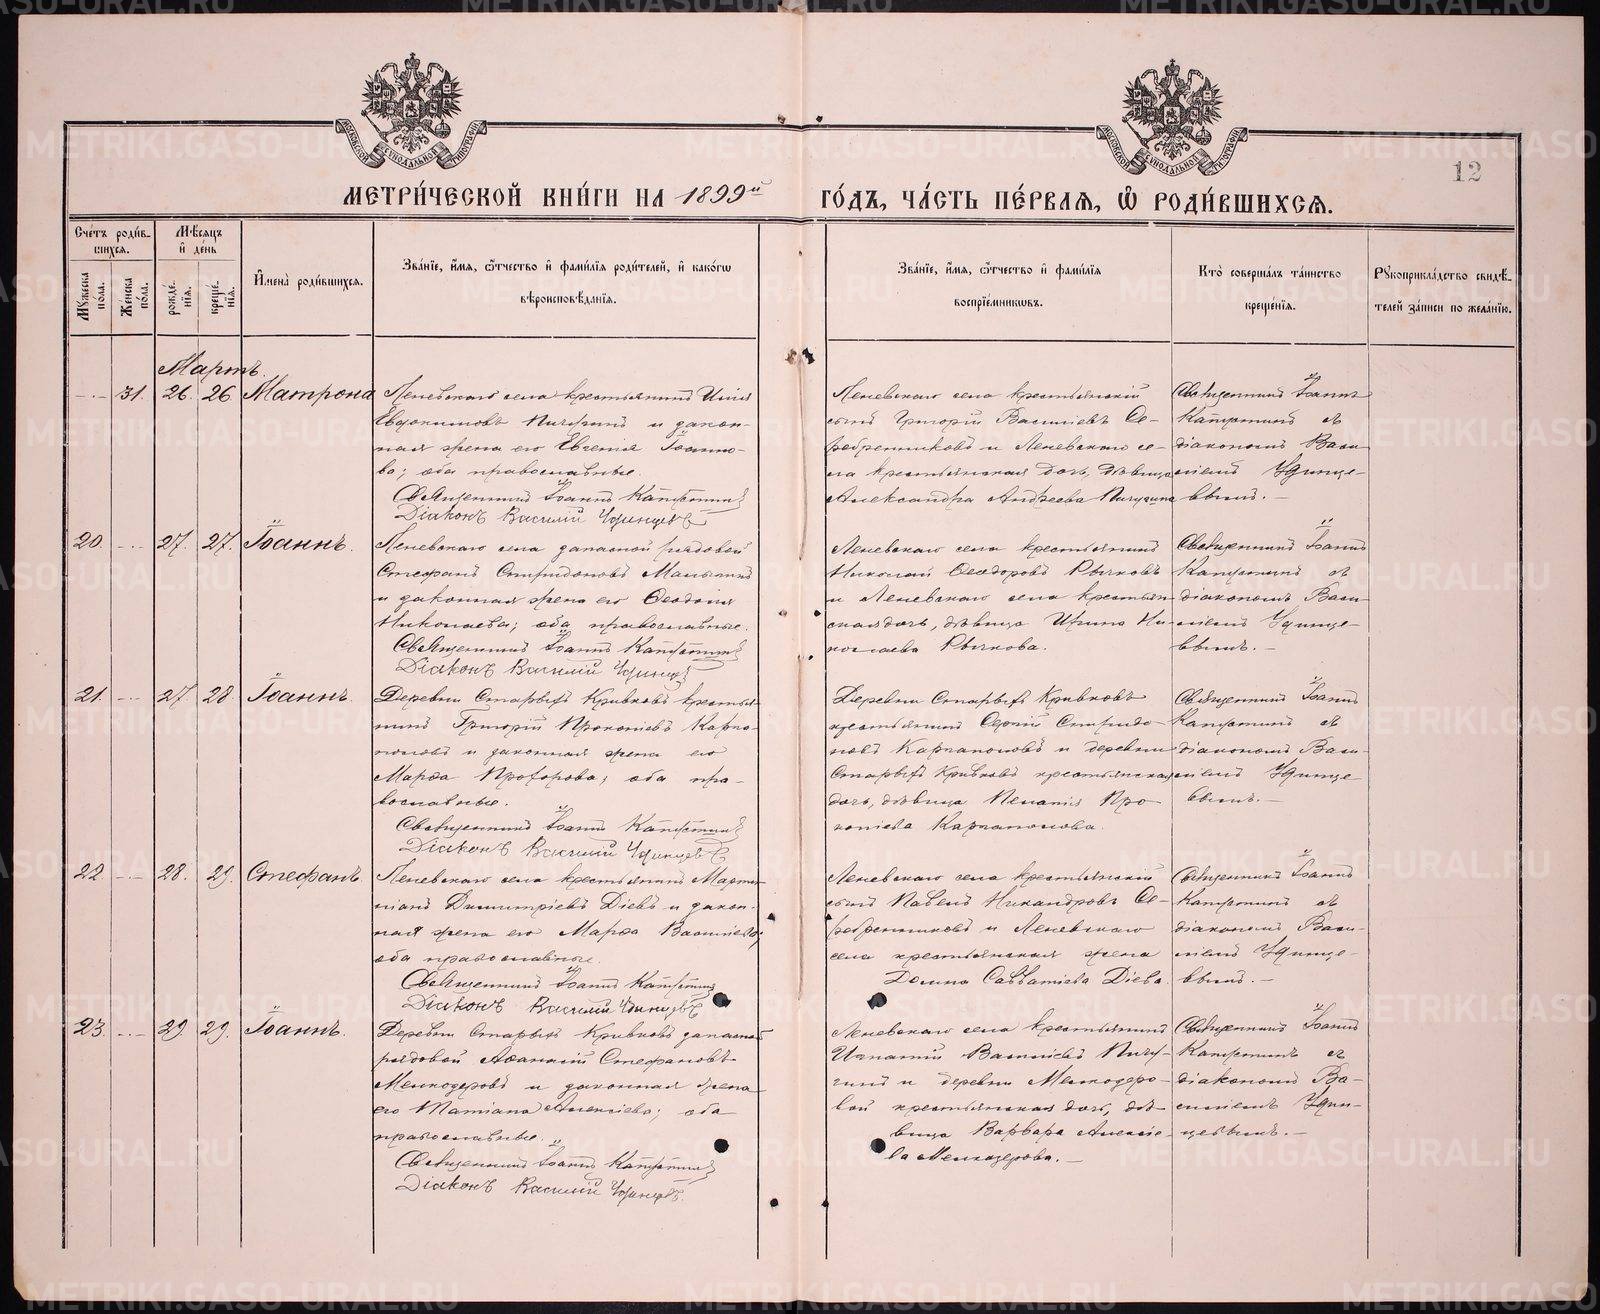 12
МЕТРИ́ЧЕСКОЙ КНИ́ГИ НА 1899й ГО́ДЪ, ЧА́СТЬ ПЕ́РВАЯ, Ѡ҆ РОДИ́ВШИХСЯ.
Сче́тъ роди́в-
шихся.
Мꙋжеска
по́ла.
Женска
по́ла.
Мѣ́сяцъ
и҆ де́нь
рожде́-
нїя.
креще́-
нїя.
И҆мена̀ роди́вшихся.
Зва́нїе, и҆́мя, ѻ҆́тчество и҆ фами́лїя роди́телей, и҆ како́гѡ
вѣроисповѣ́данїя.
Зва́нїе, и҆́мя, ѻ҆́тчество и҆ фами́лїя
воспрїе́мникѡвъ.
Кто̀ соверша́лъ та́инство
креще́нїя.
Рꙋкоприкла́дство свидѣ́-
телей за́писи по жела́нїю.
Мартъ.
31. 26. 26 Матрона
Леневскаго села крестьянинъ Илія
Евдокимовъ Пичугинъ и закон-
ная жена его Евгенія Іоанно-
ва; оба православные.
Священникъ Іоаннъ
Діаконъ Василій Удинцевъ
Леневскаго села крестьянскій
сынъ Григорій Васильевъ Се-
ребренниковъ и Леневскаго се-
ла крестьянская дочь, дѣвица
Александра Андреева Пичугина
Священникъ Іоаннъ
съ
діакономъ Васи-
ліемъ Удинце-
вымъ.-
20. 27. 27. Іоаннъ.
Леневскаго села запасной рядовой
Стефанъ Спиридоновъ
и законная жена его Ѳеодосія
Николаева; оба православные.
Священникъ Іоаннъ
Діаконъ Василій Удинцевъ
Леневскаго села крестьянинъ
Николай Ѳеодоровъ Рычковъ
и Леневскаго села крестьян-
ская дочь, дѣвица Ирина Ни-
колаева Рычкова.
Священникъ Іоаннъ
съ
діакономъ Васи-
ліемъ Удинце-
вымъ.-
21. 27 28. Іоаннъ.
Деревни Старыхъ Кривковъ крестья-
нинъ Григорій Прокопіевъ Карпа-
половъ и законная жена его
Марѳа Прохорова; оба пра-
вославные.
Священникъ Іоаннъ
Діаконъ Василій Удинцевъ
Деревни Старыхъ Кривковъ
крестьянинъ Сергій Спиридо-
новъ и деревни
Старыхъ Кривковъ крестьянская
дочь, дѣвица Пелагія Про-
копіева
Священникъ Іоаннъ
съ
діакономъ Васи-
ліемъ Удинце-
вымъ.-
22. 28. 29. Стефанъ.
Леневскаго села крестьянинъ Марти-
ніанъ Димитріевъ Діевъ и закон-
ная жена его Марѳа Васильева;
оба православные.
Священникъ Іоаннъ
Діаконъ Василій Удинцевъ
Леневскаго села крестьянскій
сынъ Павелъ Никандровъ Се-
ребренниковъ и Леневскаго
села крестьянская жена
Домна Савватіева Діева.
Священникъ Іоаннъ
съ
діакономъ Васи-
ліемъ Удинце-
вымъ.-
23. 29 29. Іоаннъ.
Деревни Старыхъ Кривковъ запасной
рядовой Стефановъ
Мелкозеровъ и законная жена
его Татіана Алексіева; оба
православные.
Священникъ Іоаннъ
Діаконъ Василій Удинцевъ
Леневскаго села крестьянинъ
Игнатій Васильевъ Пичу-
гинъ и деревни Мелкозеро-
вой крестьянская дочь, дѣ-
вица Варвара Алексіе-
ва Мелкозерова.-
Священникъ Іоаннъ
съ
діакономъ Ва-
силіемъ Удин-
цевымъ.-